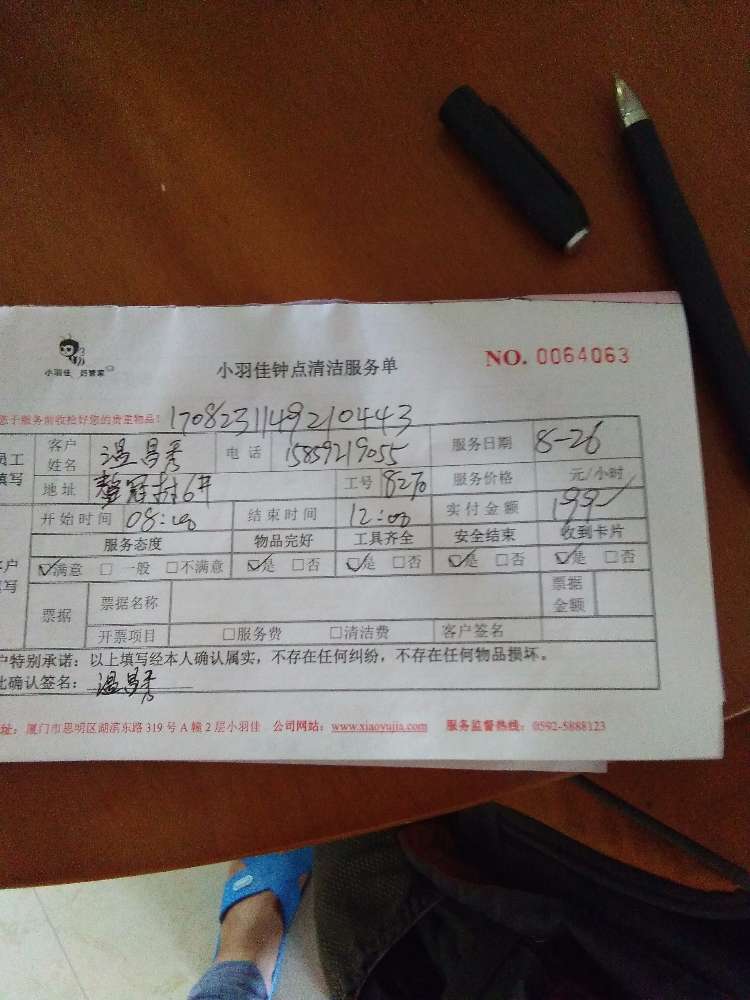 小羽佳 好管家
小羽佳钟点清洁服务单
NO. 0064063
您于服务前收拾好您的贵重物品！ 170823114921 0443
员工填写 客户姓名 温昌秀 电 话 15859219055 服务日期 8-26
地址 6# 工号 8270 服务价格 元/小时
开始时间 08:00 结束时间 12:00 实付金额 199
服务态度 物品完好 工具齐全 安全结束 收到卡片
客户填写 ☑满意 □ 一般 □不满意 ☑是 □否 ☑是 □否 ☑是 □否 ☑是 □否
票据 票据名称 票据金额
开票项目 □服务费 □清洁费 客户签名
户特别承诺：以上填写经本人确认属实，不存在任何纠纷，不存在任何物品损坏。
此确认签名： 温昌秀
址：厦门市思明区湖滨东路 319 号 A 幢 2 层小羽佳 公司网站：www.xiaoyujia.com 服务监督热线：0592-5888123